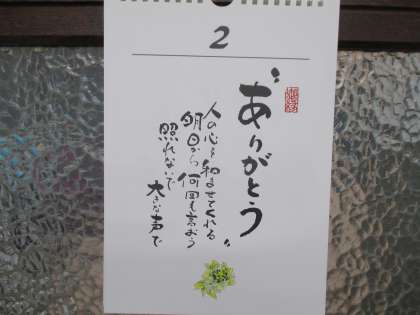 2
〝ありがとう〟
人の心を和ませてくれる
明日から何回も言おう
照れないで
大きな声で